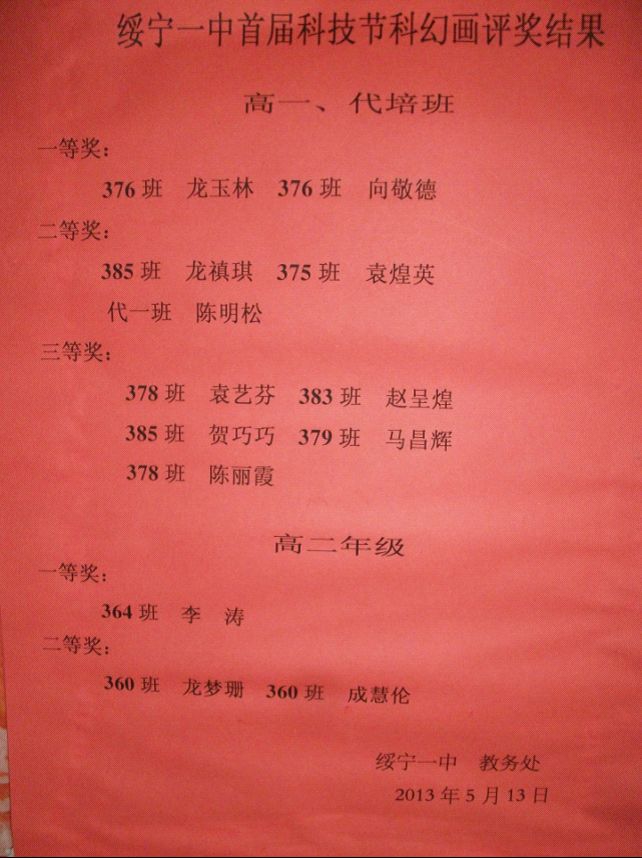 绥宁一中首届科技节科幻画评奖结果
高一、代培班
一等奖：
376 班 龙玉林 376 班 向敬德
二等奖：
385 班 龙禛琪 375 班 袁煌英
代一班 陈明松
三等奖：
378 班 袁艺芬 383 班 赵呈煌
385 班 贺巧巧 379 班 马昌辉
378 班 陈丽霞
高二年级
一等奖：
364 班 李 涛
二等奖：
360 班 龙梦珊 360 班 成慧伦
绥宁一中 教务处
2013 年 5 月 13 日